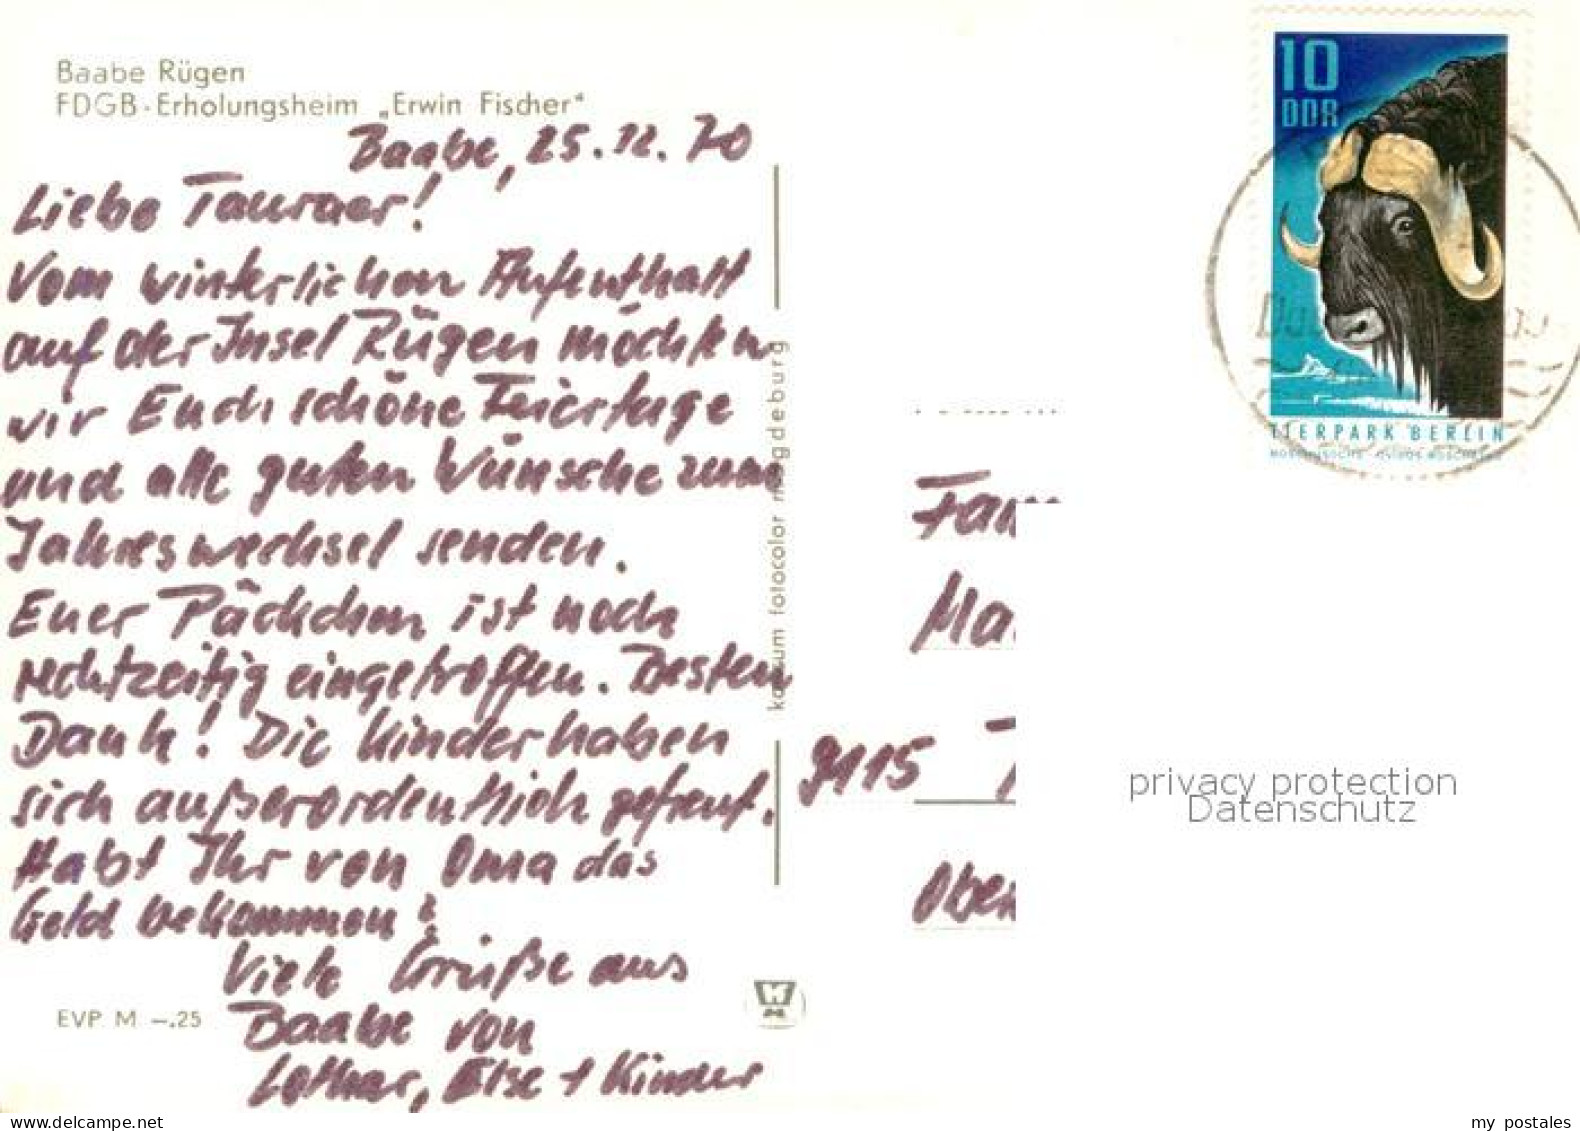 Baabe Rügen
FDGB-Erholungsheim „Erwin Fischer“
Baabe, 25.12.70
Liebe Tauraer!
Vom winterlichen Aufenthalt
auf der Insel Rügen möchten
wir Euch schöne Feiertage
und alle guten Wünsche zum
Jahreswechsel senden.
Euer Päckchen ist noch
rechtzeitig eingetroffen. Besten
Dank! Die Kinder haben
sich außerordentlich gefreut.
Habt Ihr von Oma das
Geld bekommen?
Viele Grüße aus
Baabe von
Lothar, Else + Kinder
EVP M –.25
konsum fotocolor magdeburg
10
DDR
TIERPARK BERLIN
Fam
Ma
9115 T
Ober
privacy protection
Datenschutz
my postales